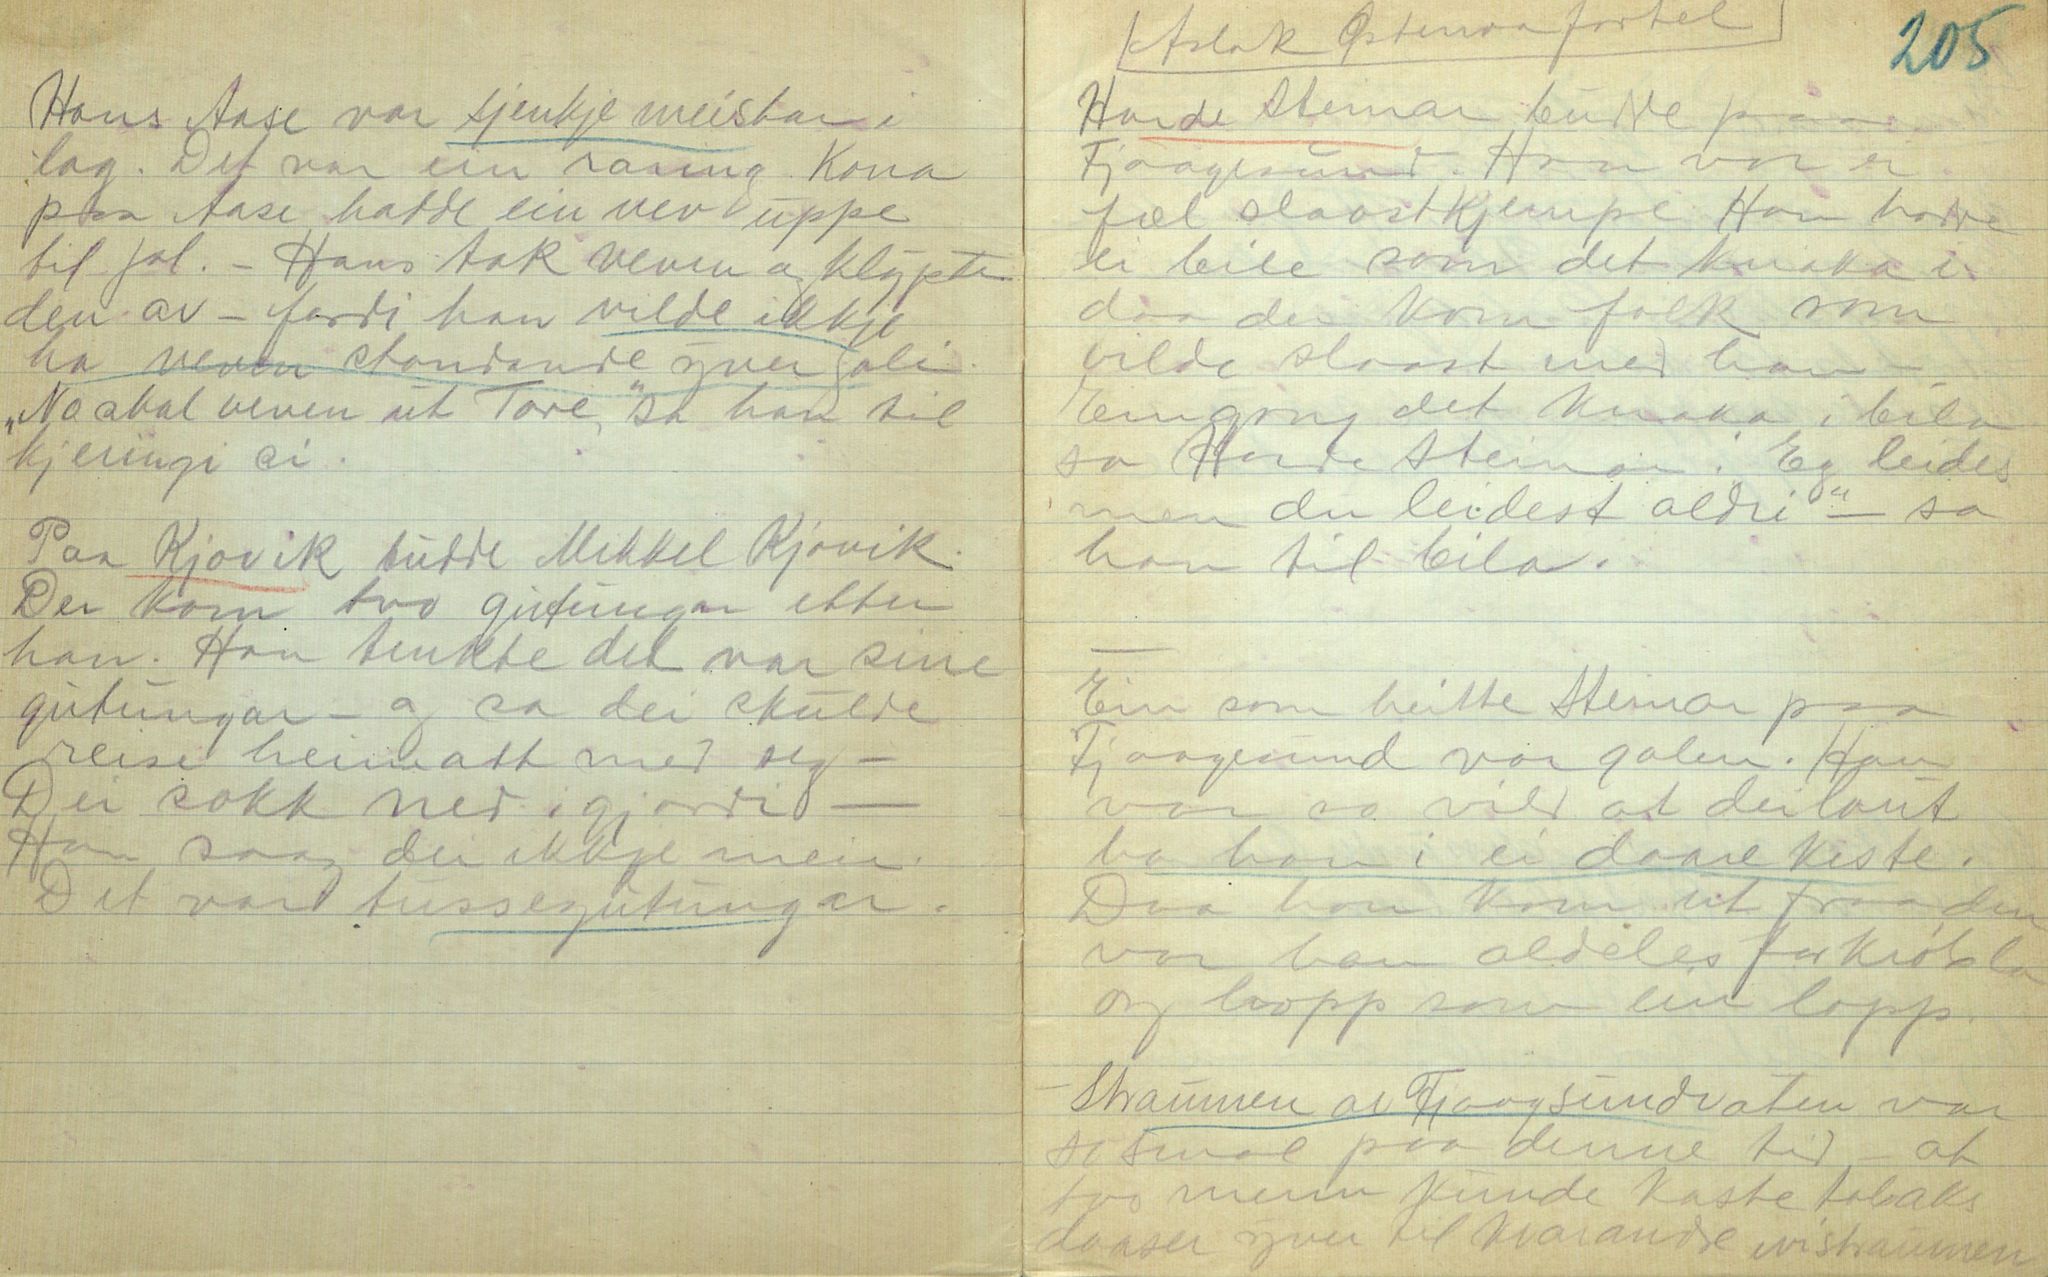 Hans Aase var sjenkje meistar i
lag. Det var ein raaing. Kona
paa Aase hadde ein vev uppe
til jol. – Hans tok veven og klypte
den av – fordi han vilde ikkje
ha veven standande yver joli.
„Naa skal veven ut Tore," sa han til
kjeringi si.
Paa Kjovik budde Mikkel Kjovik.
Der kom tvo gutungar etter
han. Han tenkte det var sine
gutungar – og sa dei skulde
reise heimatt med seg –
Dei sokk ned i gjordi —
Han saag dei ikkje meir.
Det var tussegutungar.
[Aslak Østenraa fortel]
205
Horde Steinar budde paa
Fjaagesund. Han var ei
fæl slaastkjempe Han hadde
ei bile som det knaka i
daa der kom folk som
vilde slaast med han –
Eingong det knaka i bila
sa Horde Steinar: Eg leides
men du leidest aldri" – sa
han til bila.
Ein som heitte Steinar paa
Fjaagesund var galen. Han
var so vild at dei laut
ha han i ei daarekiste.
Daa han kom ut fraa den
var han aldeles forkrøbla
og hopp som ein lopp.
Straumen av Fjaagsundvaten var
so smal paa denne tid – at
tvo menn kunde kaste tobaks
daaser yver til kvarandre yvi straumen